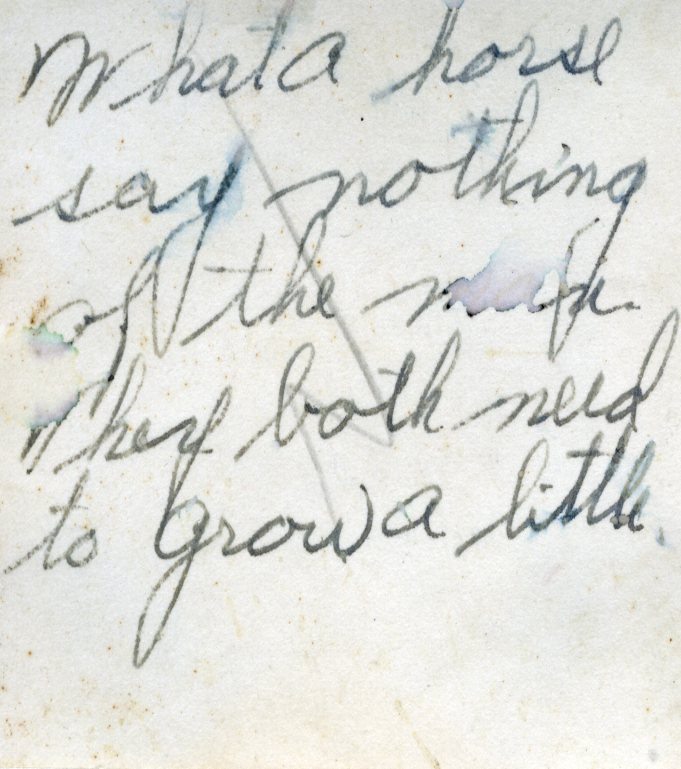 What a horse
say nothing
of the man
They both need
to grow a little.